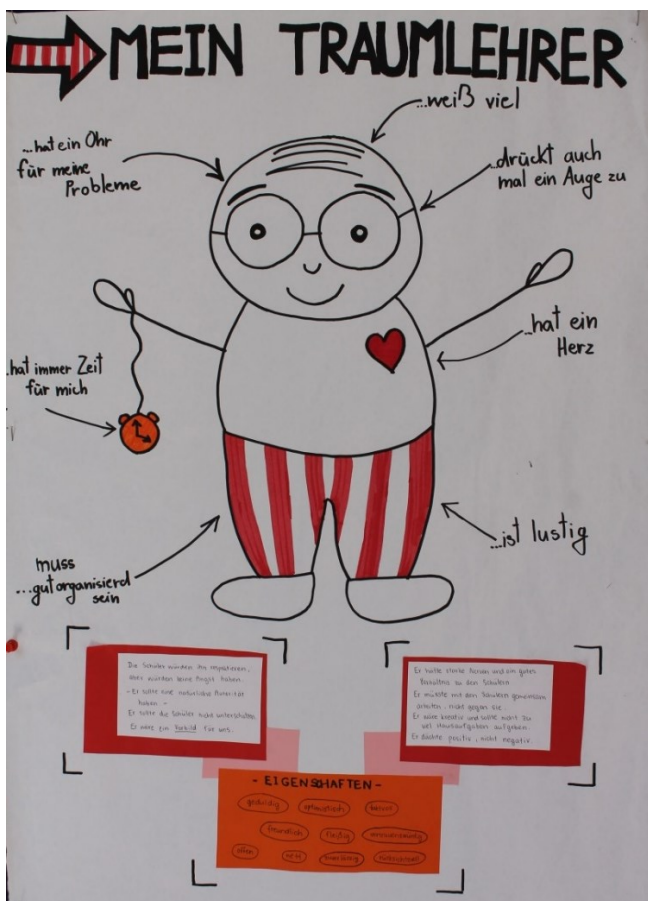 MEIN TRAUMLEHRER
...weiß viel
...hat ein Ohr
für meine
Probleme
...drückt auch
mal ein Auge zu
...hat ein
Herz
..hat immer Zeit
für mich
...ist lustig
muss
...gut organisierd
sein
Die Schüler würden ihn respektieren,
aber würden keine Angst haben.
- Er sollte eine natürliche Autorität
haben -
Er sollte die Schüler nicht unterschätzen.
Er wäre ein Vorbild für uns.
Er sollte starke Nerven und ein gutes
zu den Schülern
Er müsste mit den Schülern gemeinsam
arbeiten, nicht gegen sie.
Er wäre kreativ und sollte nicht zu
viel Hausaufgaben aufgeben.
Er dächte positiv, nicht negativ
- EIGENSCHAFTEN -
geduldig optimistisch
freundlich fleißig
offen nett